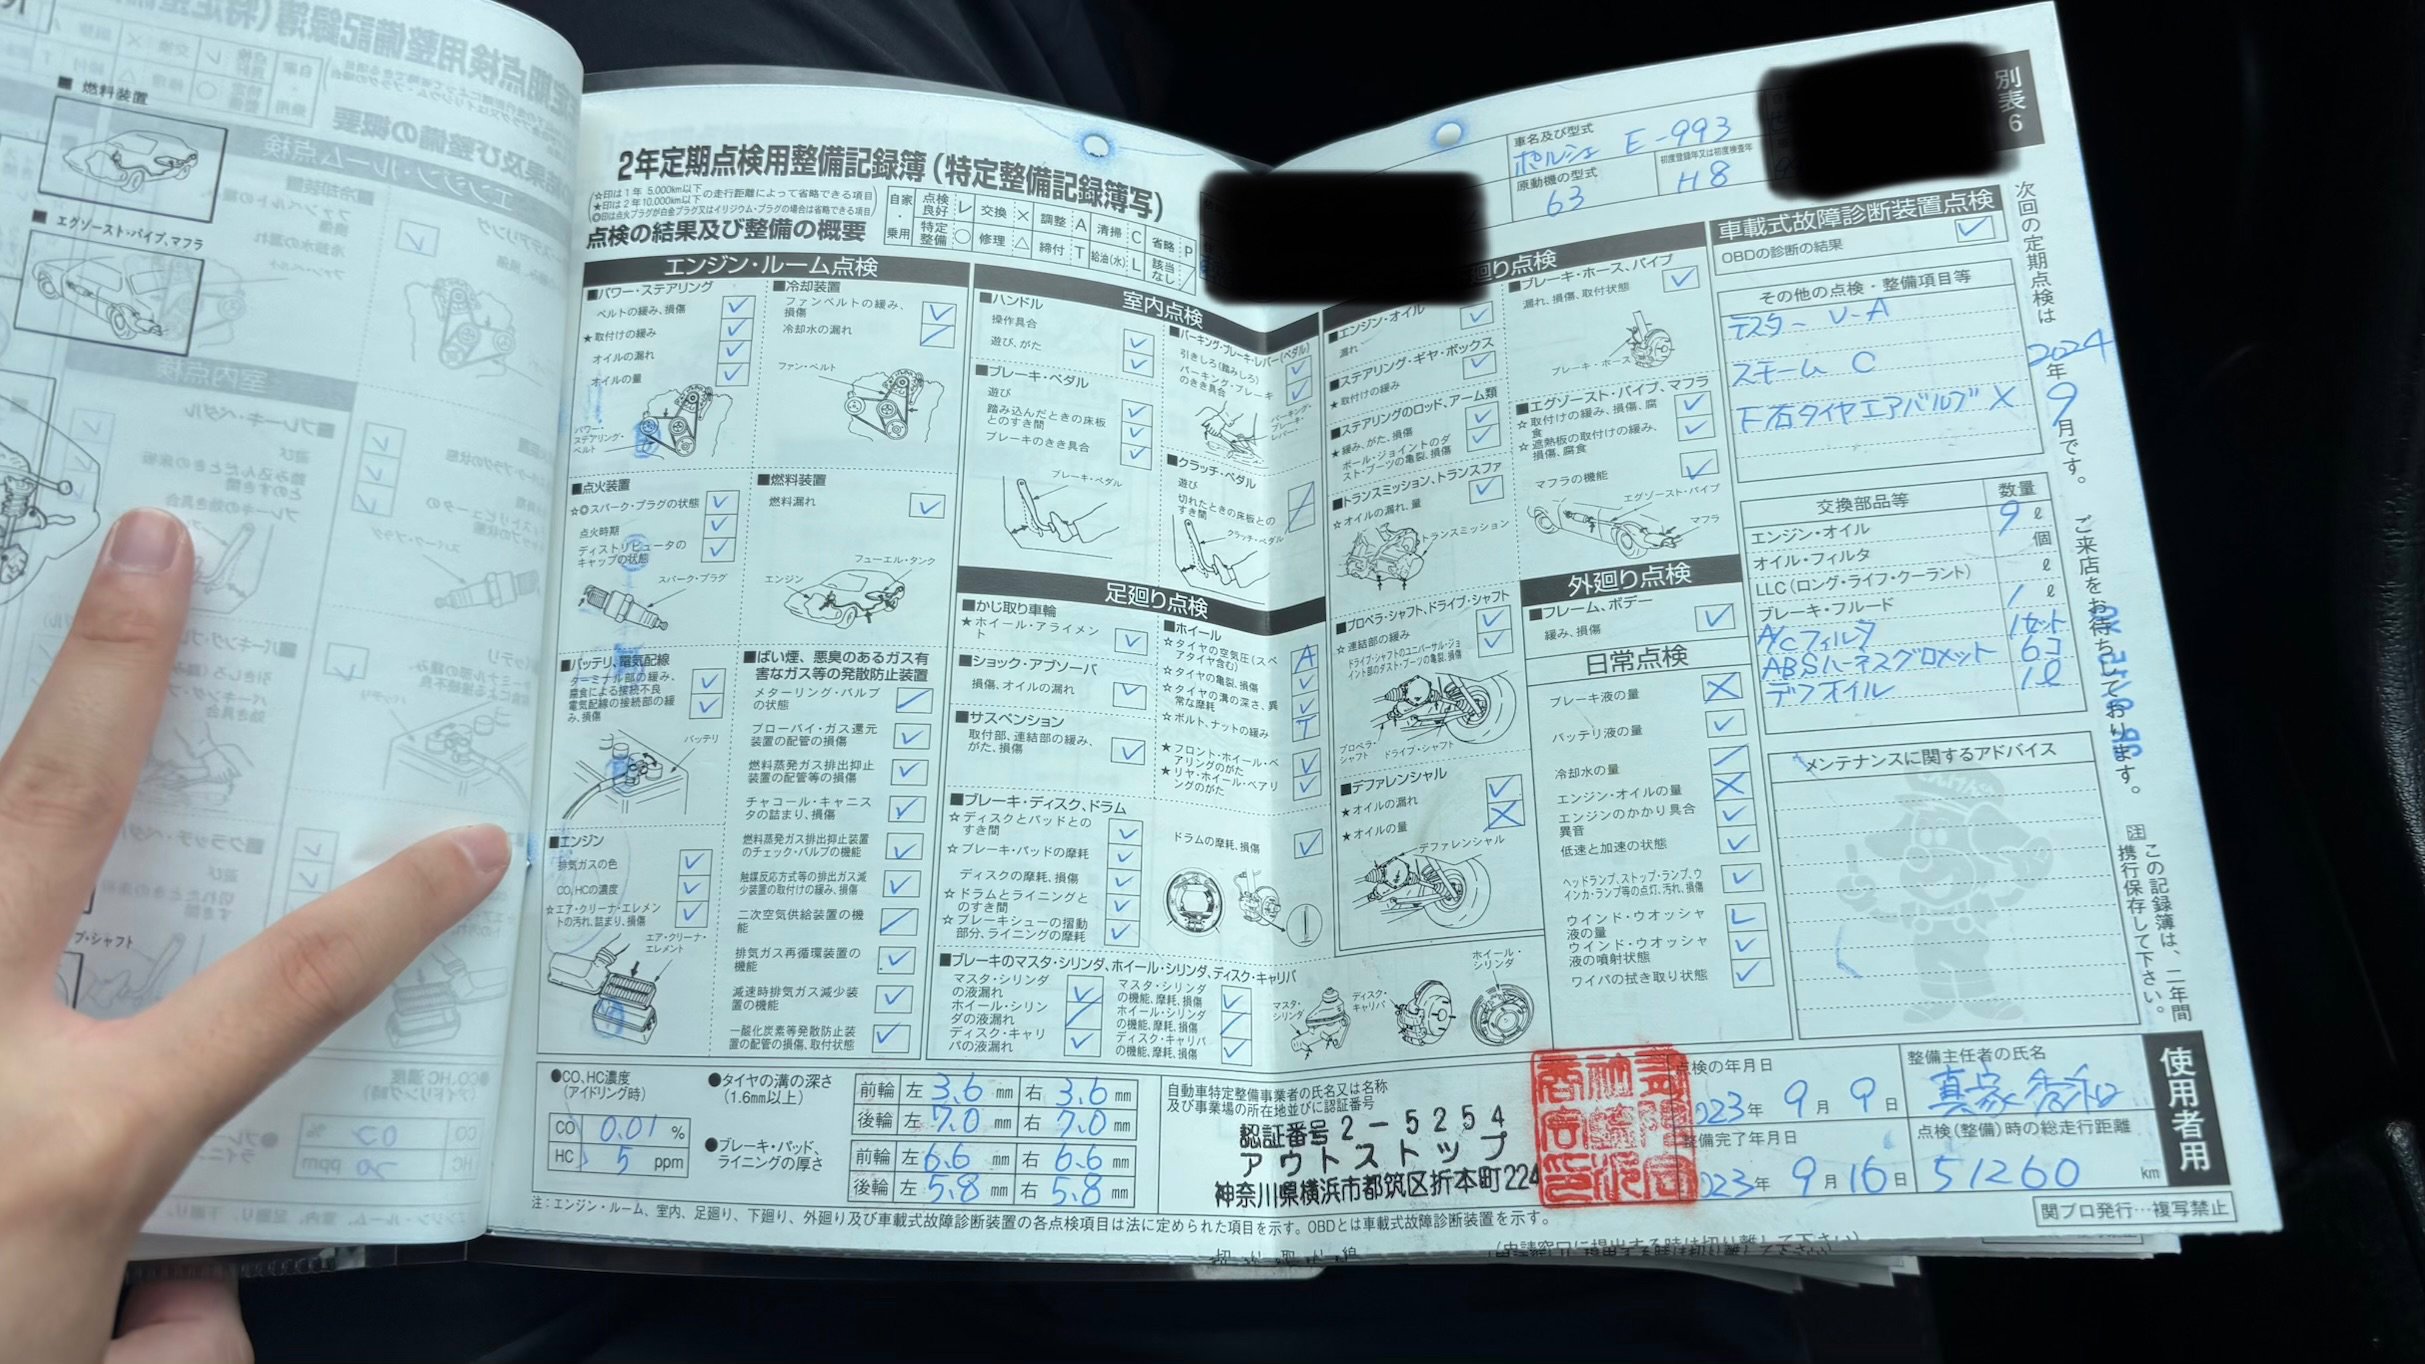 ■ 燃料装置
■ エグゾースト・パイプ、マフラ
2年定期点検用整備記録簿(特定整備記録簿写)
☆印は1年 5,000km以下
★印は2年 10,000km以下
の走行距離によって省略できる項目
◎印は点火プラグが白金プラグ又はイリジウム・プラグの場合は省略できる項目
点検の結果及び整備の概要
自家・乗用
点検良好 レ 交換 × 調整 A 清掃 C 省略 P
特定整備 ○ 修理 △ 締付 T 給油(水) L 該当なし /
車名及び型式
ポルシェ E-993
原動機の型式
63
初度登録年又は初度検査年
H8
別表6
エンジン・ルーム点検
■パワー・ステアリング
ベルトの緩み、損傷 レ
★取付けの緩み レ
オイルの漏れ レ
オイルの量 レ
パワー・ステアリング・ベルト
■冷却装置
ファンベルトの緩み、損傷 レ
冷却水の漏れ /
ファン・ベルト
■点火装置
☆◎スパーク・プラグの状態 レ
点火時期 レ
ディストリビュータのキャップの状態 レ
スパーク・プラグ
■燃料装置
燃料漏れ レ
フューエル・タンク
エンジン
■バッテリ、電気配線
ターミナル部の緩み、腐食による接続不良 レ
電気配線の接続部の緩み、損傷 レ
バッテリ
■ばい煙、悪臭のあるガス有害なガス等の発散防止装置
メターリング・バルブの状態 /
ブローバイ・ガス還元装置の配管の損傷 レ
燃料蒸発ガス排出抑止装置の配管等の損傷 レ
チャコール・キャニスタの詰まり、損傷 レ
燃料蒸発ガス排出抑止装置のチェック・バルブの機能 レ
触媒反応方式等の排出ガス減少装置の取付けの緩み、損傷 レ
二次空気供給装置の機能 /
排気ガス再循環装置の機能 レ
減速時排気ガス減少装置の機能 レ
一酸化炭素等発散防止装置の配管の損傷、取付状態 レ
■エンジン
排気ガスの色 レ
CO、HCの濃度 レ
☆エア・クリーナ・エレメントの汚れ、詰まり、損傷 レ
エア・クリーナ・エレメント
室内点検
■ハンドル
操作具合 レ
遊び、がた レ
■ブレーキ・ペダル
遊び レ
踏み込んだときの床板とのすき間 レ
ブレーキのきき具合 レ
ブレーキ・ペダル
■パーキング・ブレーキ・レバー(ペダル)
引きしろ(踏みしろ) レ
パーキング・ブレーキのきき具合 レ
パーキング・ブレーキ・レバー
■クラッチ・ペダル
遊び /
切れたときの床板とのすき間 /
クラッチ・ペダル
足廻り点検
■かじ取り車輪
★ホイール・アライメント レ
■ショック・アブソーバ
損傷、オイルの漏れ レ
■サスペンション
取付部、連結部の緩み、がた、損傷 レ
■ホイール
☆タイヤの空気圧(スペアタイヤ含む) A
☆タイヤの亀裂、損傷 レ
☆タイヤの溝の深さ、異常な摩耗 レ
☆ボルト、ナットの緩み T
★フロント・ホイール・ベアリングのがた レ
★リヤ・ホイール・ベアリングのがた レ
■ブレーキ・ディスク、ドラム
☆ディスクとパッドとのすき間 レ
☆ブレーキ・パッドの摩耗 レ
ディスクの摩耗、損傷 レ
☆ドラムとライニングとのすき間 レ
☆ブレーキシューの摺動部分、ライニングの摩耗 レ
ドラムの摩耗、損傷 レ
■ブレーキのマスタ・シリンダ、ホイール・シリンダ、ディスク・キャリパ
マスタ・シリンダの液漏れ レ
ホイール・シリンダの液漏れ /
ディスク・キャリパの液漏れ レ
マスタ・シリンダの機能、摩耗、損傷 レ
ホイール・シリンダの機能、摩耗、損傷 /
ディスク・キャリパの機能、摩耗、損傷 レ
マスタ・シリンダ
ディスク・キャリパ
ホイール・シリンダ
廻り点検
■エンジン・オイル
漏れ レ
■ステアリング・ギヤ・ボックス
★取付けの緩み レ
■ステアリングのロッド、アーム類
★緩み、がた、損傷 レ
ボール・ジョイントのダスト・ブーツの亀裂、損傷 レ
■トランスミッション、トランスファ
☆オイルの漏れ、量 レ
トランスミッション
■プロペラ・シャフト、ドライブ・シャフト
☆連結部の緩み レ
ドライブ・シャフトのユニバーサル・ジョイント部のダスト・ブーツの亀裂、損傷 レ
プロペラ・シャフト
ドライブ・シャフト
■デファレンシャル
★オイルの漏れ レ
★オイルの量 ×
デファレンシャル
■ブレーキ・ホース、パイプ
漏れ、損傷、取付状態 レ
ブレーキ・ホース
■エグゾースト・パイプ、マフラ
☆取付けの緩み、損傷、腐食 レ
☆遮熱板の取付けの緩み、損傷、腐食 レ
マフラの機能 レ
エグゾースト・パイプ
マフラ
外廻り点検
■フレーム、ボデー
緩み、損傷 レ
日常点検
ブレーキ液の量 ×
バッテリ液の量 レ
冷却水の量 /
エンジン・オイルの量 ×
エンジンのかかり具合異音 レ
低速と加速の状態 レ
ヘッドランプ、ストップ・ランプ、ウインカ・ランプ等の点灯、汚れ、損傷 レ
ウインド・ウオッシャ液の量 L
ウインド・ウオッシャ液の噴射状態 レ
ワイパの拭き取り状態 レ
車載式故障診断装置点検
OBDの診断の結果 レ
その他の点検・整備項目等
テスター V-A
スチーム C
F右タイヤエアバルブ ×
交換部品等 数量
エンジン・オイル 9 ℓ
オイル・フィルタ 個
LLC(ロング・ライフ・クーラント) ℓ
ブレーキ・フルード 1 ℓ
A/Cフィルタ 1セット
ABSハーネスグロメット 6コ
デフオイル 1ℓ
メンテナンスに関するアドバイス
次回の定期点検は 2024年 9月です。 ご来店をお待ちしております。
注 この記録簿は、二年間携行保存して下さい。
使用者用
●CO、HC濃度(アイドリング時)
CO 0.01 %
HC 5 ppm
●タイヤの溝の深さ(1.6mm以上)
前輪 左 3.6 mm 右 3.6 mm
後輪 左 7.0 mm 右 7.0 mm
●ブレーキ・パッド、ライニングの厚さ
前輪 左 6.6 mm 右 6.6 mm
後輪 左 5.8 mm 右 5.8 mm
自動車特定整備事業者の氏名又は名称及び事業場の所在地並びに認証番号
認証番号2-5254
アウトストップ
神奈川県横浜市都筑区折本町224
点検の年月日
2023年 9月 9日
整備完了年月日
2023年 9月 16日
整備主任者の氏名
点検(整備)時の総走行距離
51260 km
注:エンジン・ルーム、室内、足廻り、下廻り、外廻り及び車載式故障診断装置の各点検項目は法に定められた項目を示す。OBDとは車載式故障診断装置を示す。
関プロ発行…複写禁止
切 り 取 り 線
(申請窓口に提出する時は切り離して下さい)